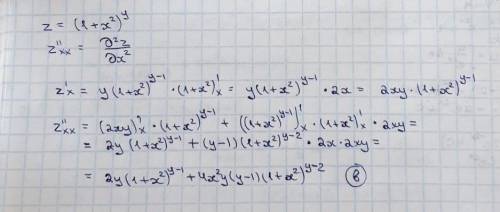 z = (1+x²)^y
z''ₓₓ = ∂²z/∂x²
z'ₓ = y(1+x²)^(y-1) · (1+x²)'ₓ = y(1+x²)^(y-1) · 2x = 2xy · (1+x²)^(y-1)
z''ₓₓ = (2xy)'ₓ · (1+x²)^(y-1) + ((1+x²)^(y-1))'ₓ · (1+x²)'ₓ · 2xy =
= 2y (1+x²)^(y-1) + (y-1)(1+x²)^(y-2) · 2x · 2xy =
= 2y(1+x²)^(y-1) + 4x²y(y-1)(1+x²)^(y-2) (в)